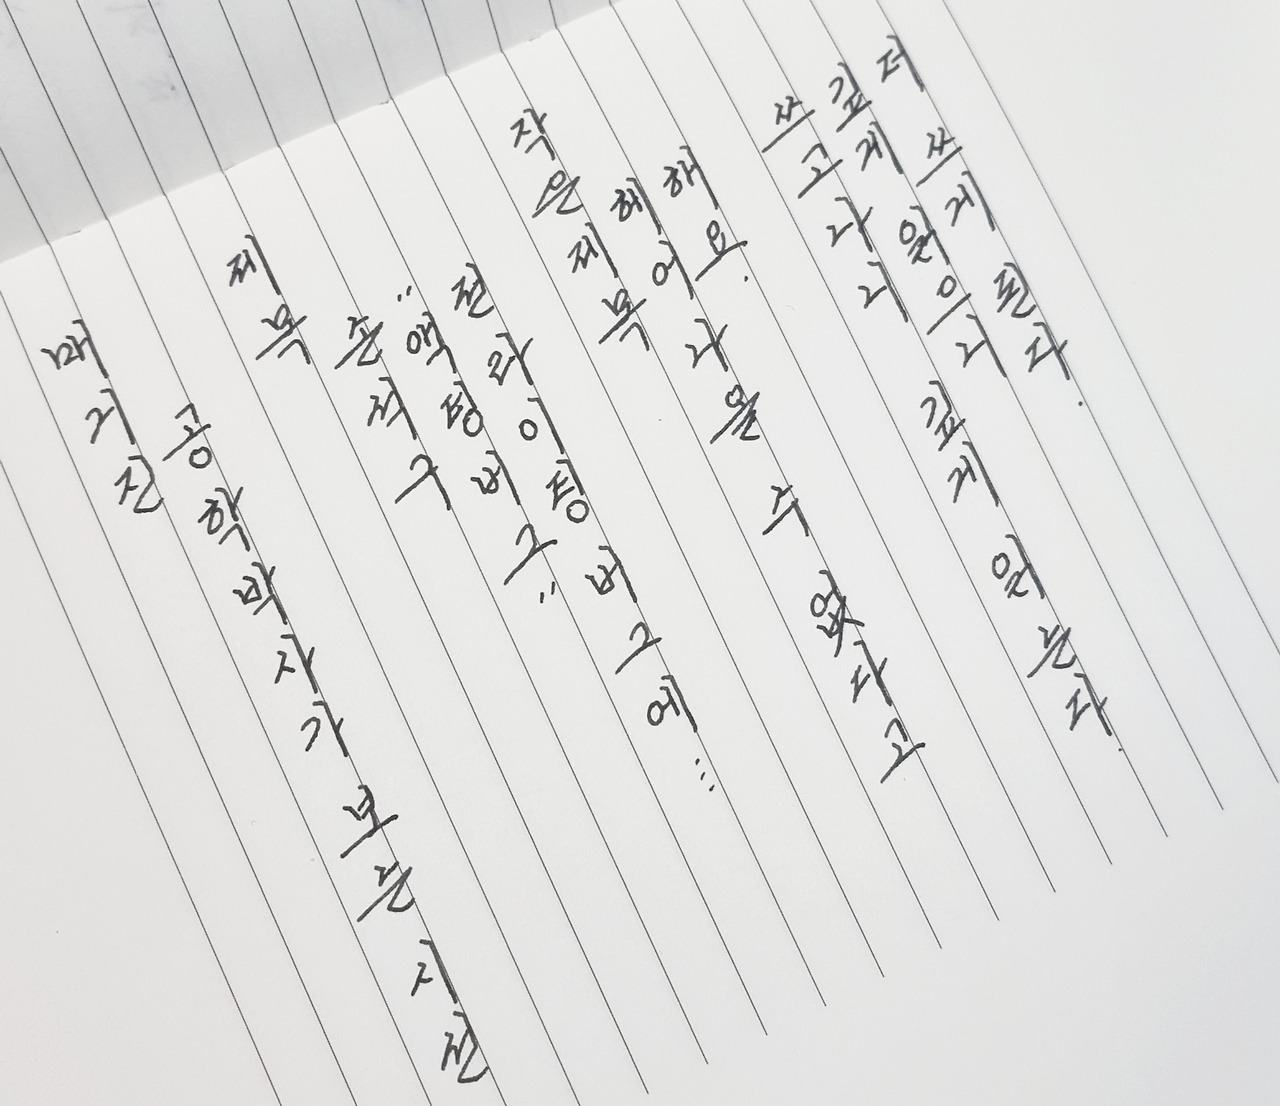 매거진
공학박사가 보는 시선
제목
손석구
"액팅버그"
전 라이팅 버그에...
작은제목
헤어나올 수 없다고
해요.
쓰고나니
깊게 읽으니 깊게 읽는다.
더 쓰게 된다.